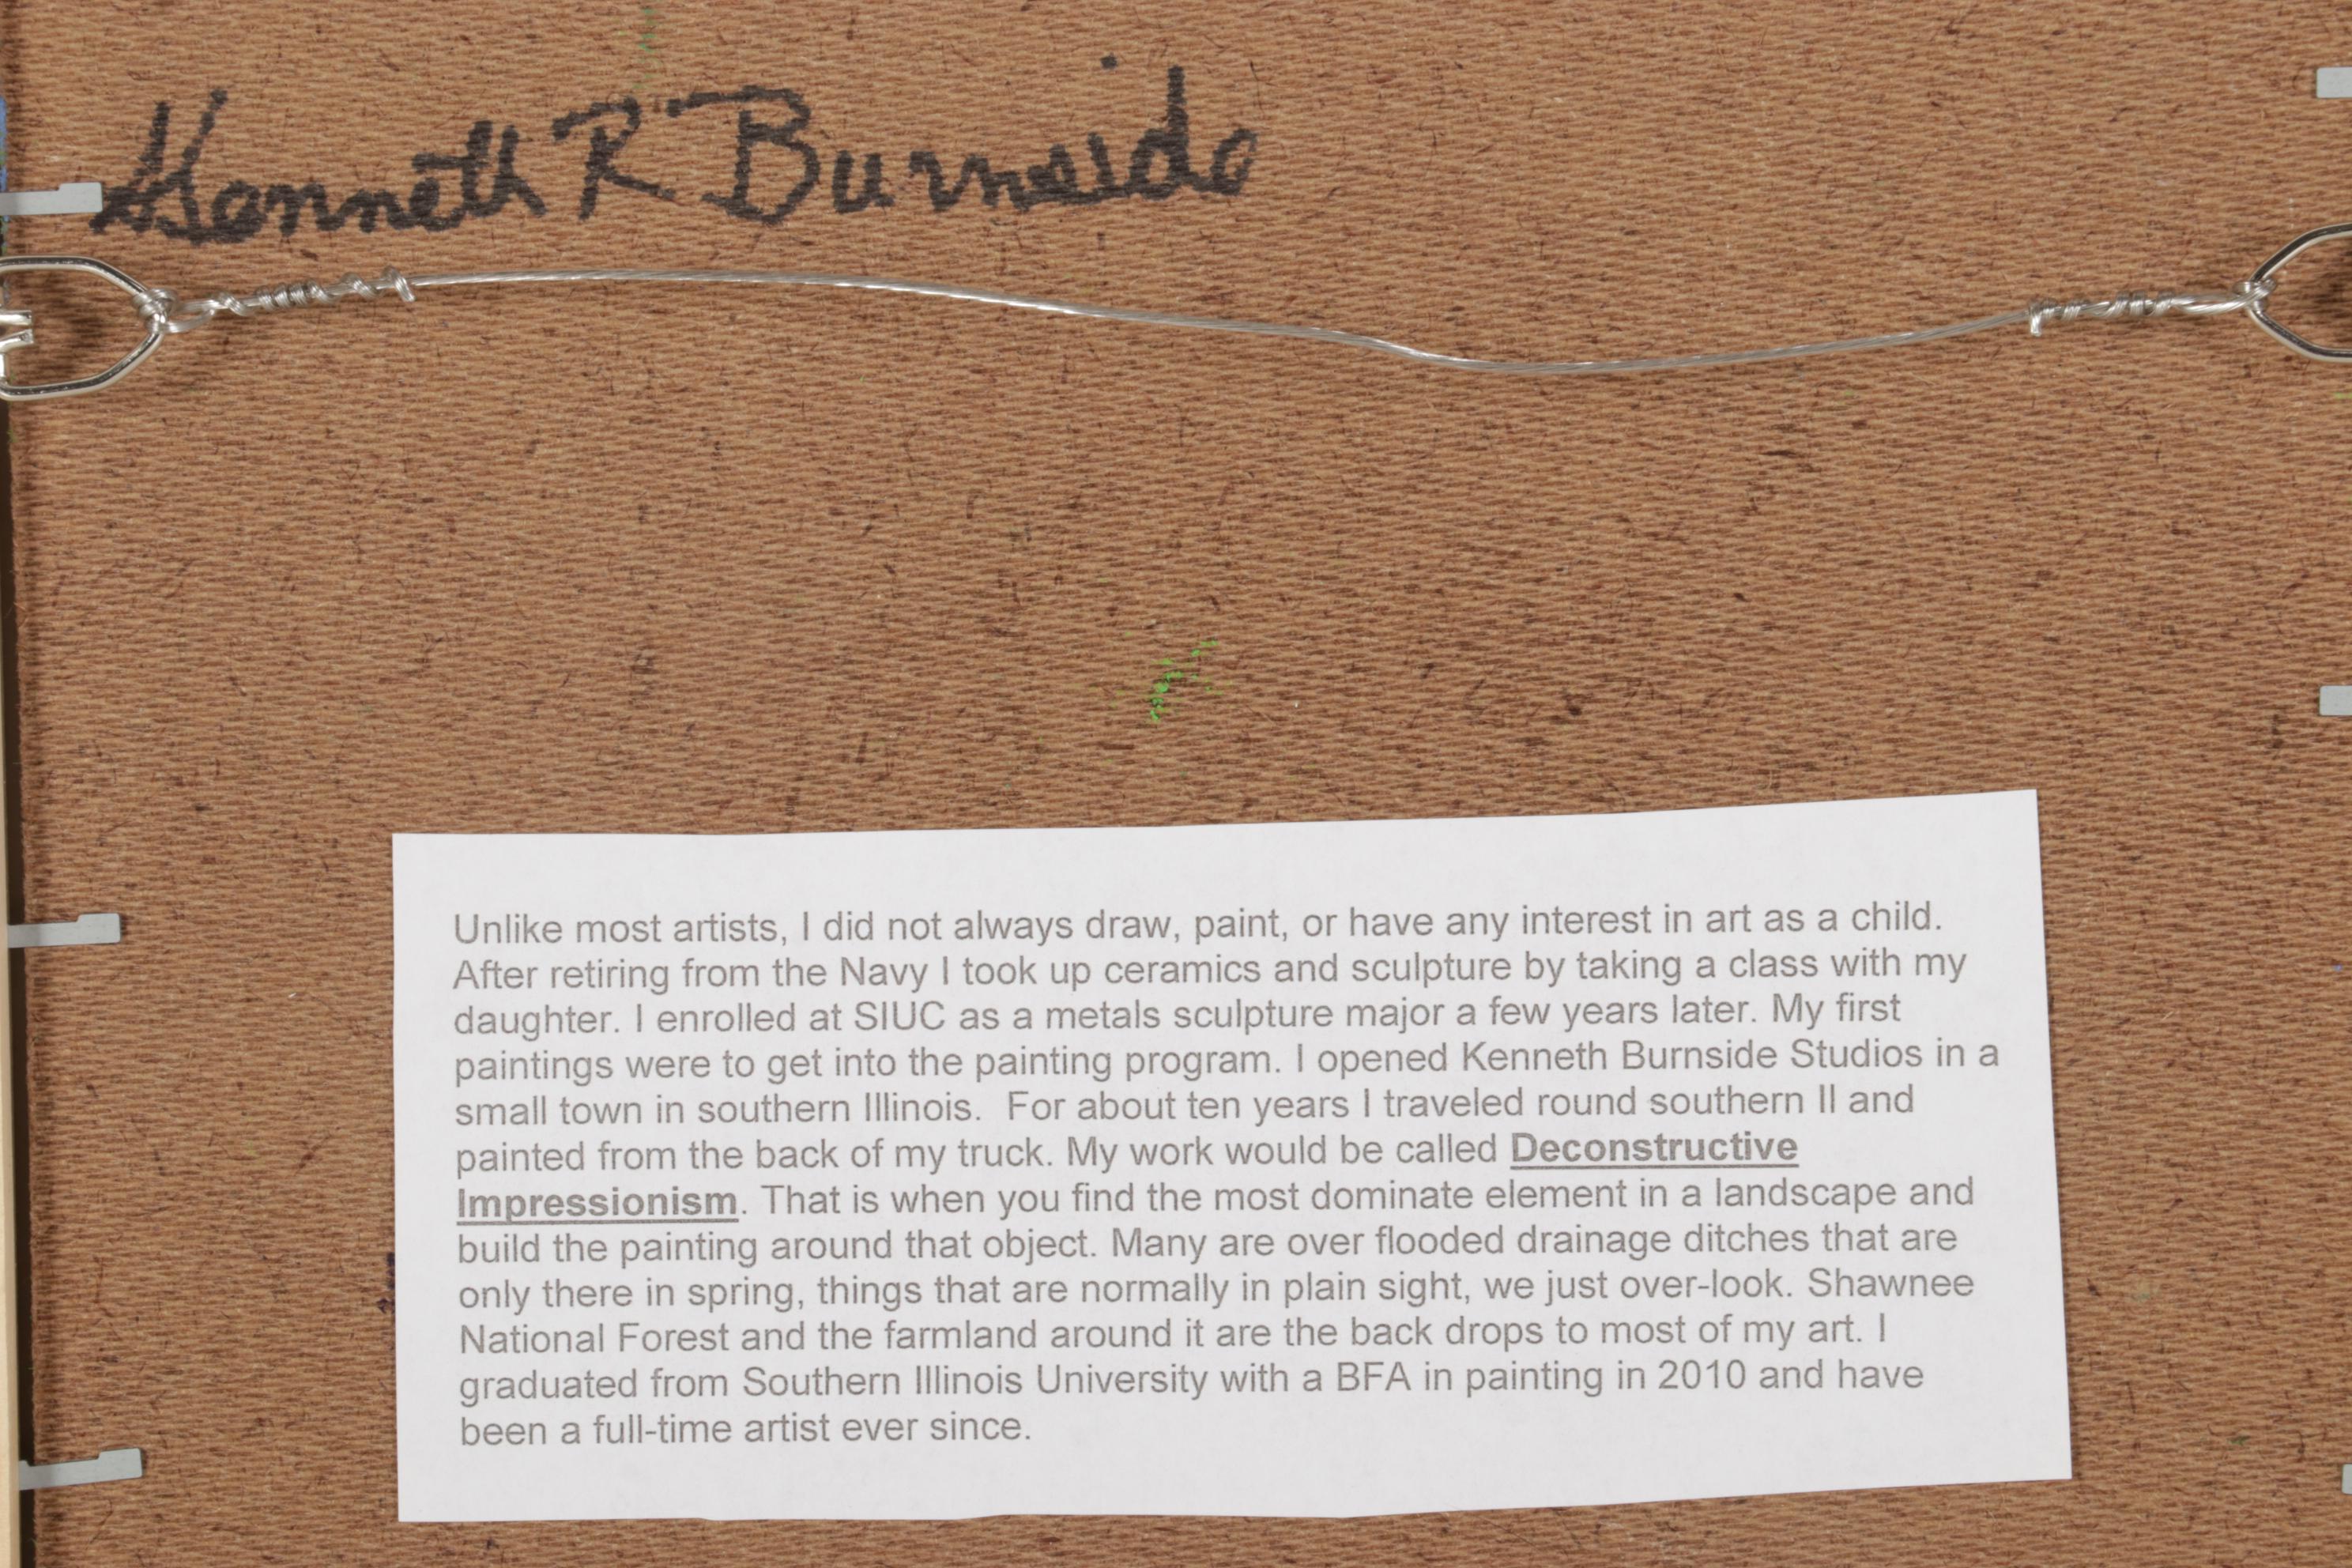 Kenneth R Burnside
Unlike most artists, I did not always draw, paint, or have any interest in art as a child.
After retiring from the Navy I took up ceramics and sculpture by taking a class with my
daughter. I enrolled at SIUC as a metals sculpture major a few years later. My first
paintings were to get into the painting program. I opened Kenneth Burnside Studios in a
small town in southern Illinois.  For about ten years I traveled round southern Il and
painted from the back of my truck. My work would be called Deconstructive
Impressionism. That is when you find the most dominate element in a landscape and
build the painting around that object. Many are over flooded drainage ditches that are
only there in spring, things that are normally in plain sight, we just over-look. Shawnee
National Forest and the farmland around it are the back drops to most of my art. I
graduated from Southern Illinois University with a BFA in painting in 2010 and have
been a full-time artist ever since.